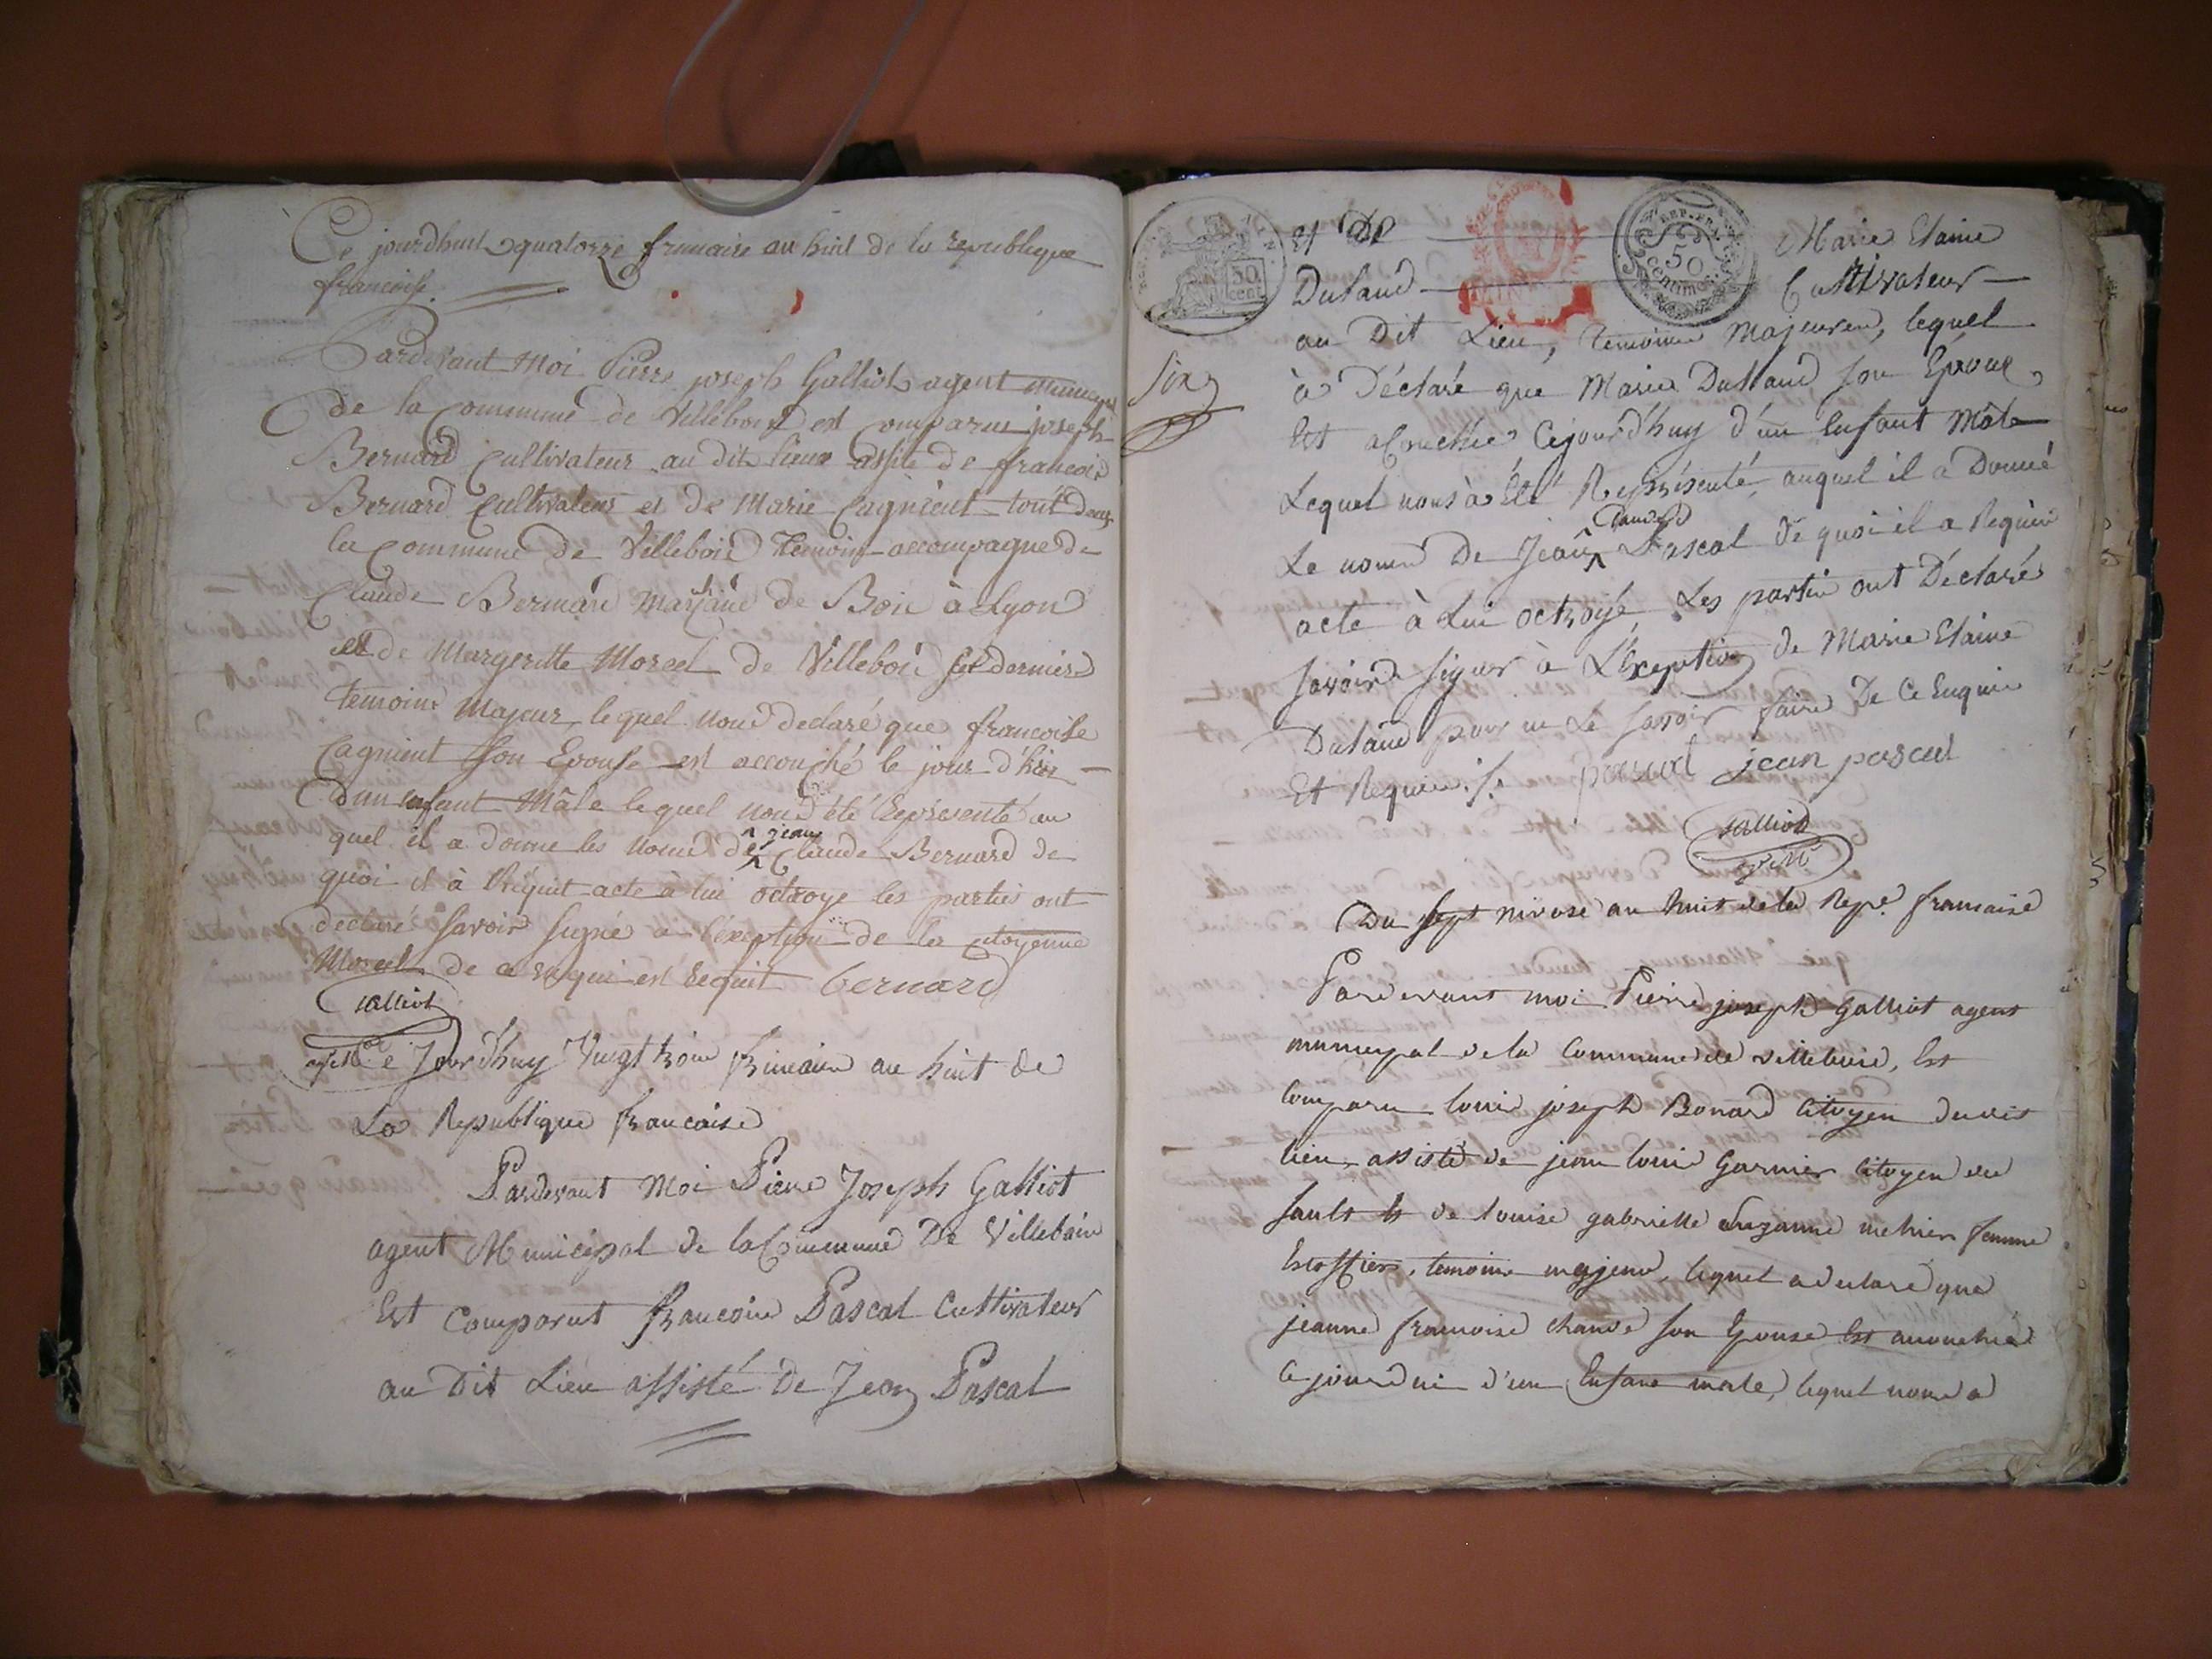 Ce jourdhuit quatorze frimaire an huit de la republique
francoise.
Pardevant Moi Pierre joseph Galliot agent Municipal
de la Commune de Villebois est Comparus joseph
Bernard Cultivateur au dit lieux assité de francois
Bernard Cultivateur et de Marie Cagnient tout deux
la Commune de Villebois Temoins accompagne de
Claude Bernard Marchand de Bois à Lyon
et de Margeritte Morcel de Villebois ses dernier
temoins Majeur lequel nous declaré que francoise
Cagnient son Epouse est accouché le jour d'hier
d'un enfant Mâle lequel nous été Représenté au
quel il a donne les noms de jean Claude Bernard de
quoi il à Requit acte à lui octroye les parties ont
declaré savoir signé a l'exeption de la citoyenne
Morcel de ce enqui est Requit bernard
Galliot
agt Mal
Ce Jourdhuy Vingt trois frimaire an huit de
La Republique francaise
Pardevant Moi Pierre Joseph Galliot
agent Municipal de la Commune De Villebois
Est Comparut francois Pascal Cultivateur
au Dit Lieu assisté De Jean Pascal
30
cent
REP. FRA
50
centimes
Six
et De Marie Elaine
Dutaud Cultivateur
au Dit Lieu, temoins Majeures, lequel
à Déclaré que Marie Dutaud son Épouse
Est acouchée Cejourd'huy d'un Enfant Mâle
Lequel nous à Eté Représenté, auquel il a Donné
Le nom De Jean Claude Pascal De quoi il a Requis
acte à Lui octroyé, Les parties ont Déclaré
savoir signer à L'Exeption de Marie Elaine
Dutaud pour ne Le savoir faire De Ce Enquis
Et Requis ./. pascal jean pascal
Galliot
agt Mal
Du sept nivose an huit de la Repe. francaise
Pardevant moi Pierre joseph Galliot agent
municipal de la Commune de villebois, Est
Comparu louis joseph Bonard Citoyen dudit
lieu assisté de jean louis Garnier Citoyen de
sault et de louise gabrielle Suzanne methier femme
temoins majeurs, lequel a declaré que
jeanne francoise son Epouse Est accouchée
Cejourdui d'un Enfant male, lequel nous a